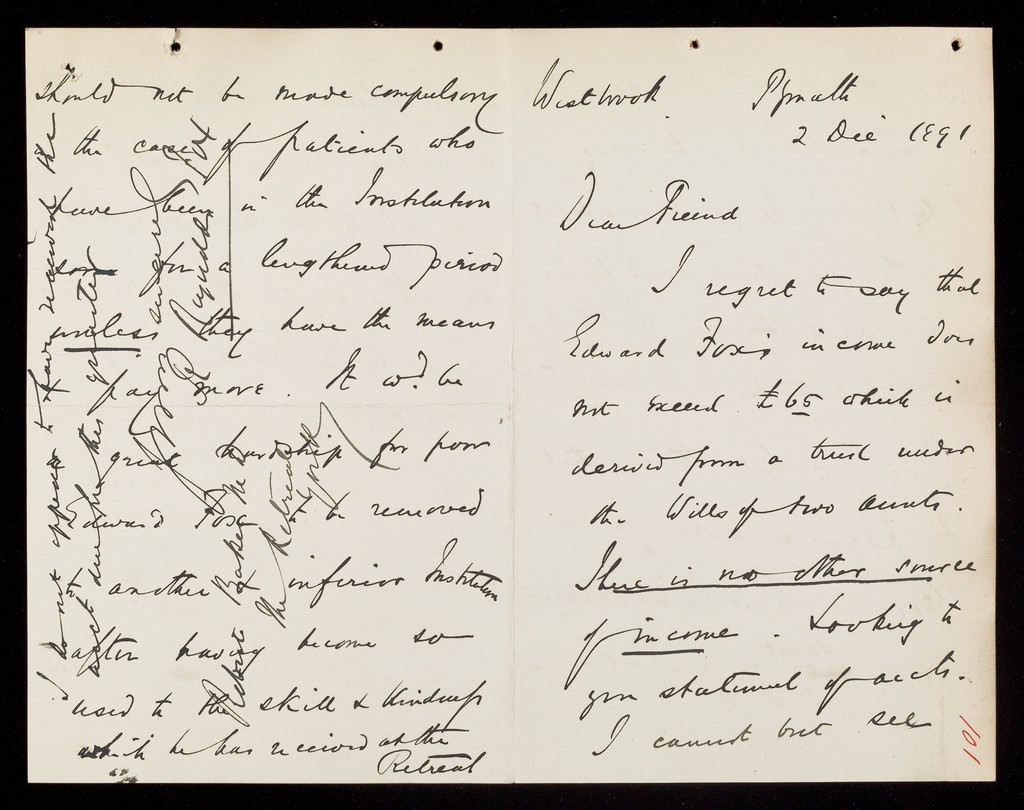 Westbrook Plymouth
2 Dec 1891
Dear Friend
I regret to say that
Edward Fox's income does
not exceed £65 which is
derived from a trust under
the Wills of two aunts.
There is no other source
of income. Looking to
your statement of accts.
I cannot but see
101
should not be made compulsory
in the case of patients who
have been in the Institution
some for a lengthened period
unless they have the means
to pay more. It wd. be
a great hardship for poor
Edward Fox to be removed
to another & inferior Institution
after having become so
used to the skill & kindness
which he has received at the
Retreat
I do not appear to have received the
last due the this quarter
sincerely
Robert Baker
The Retreat
York